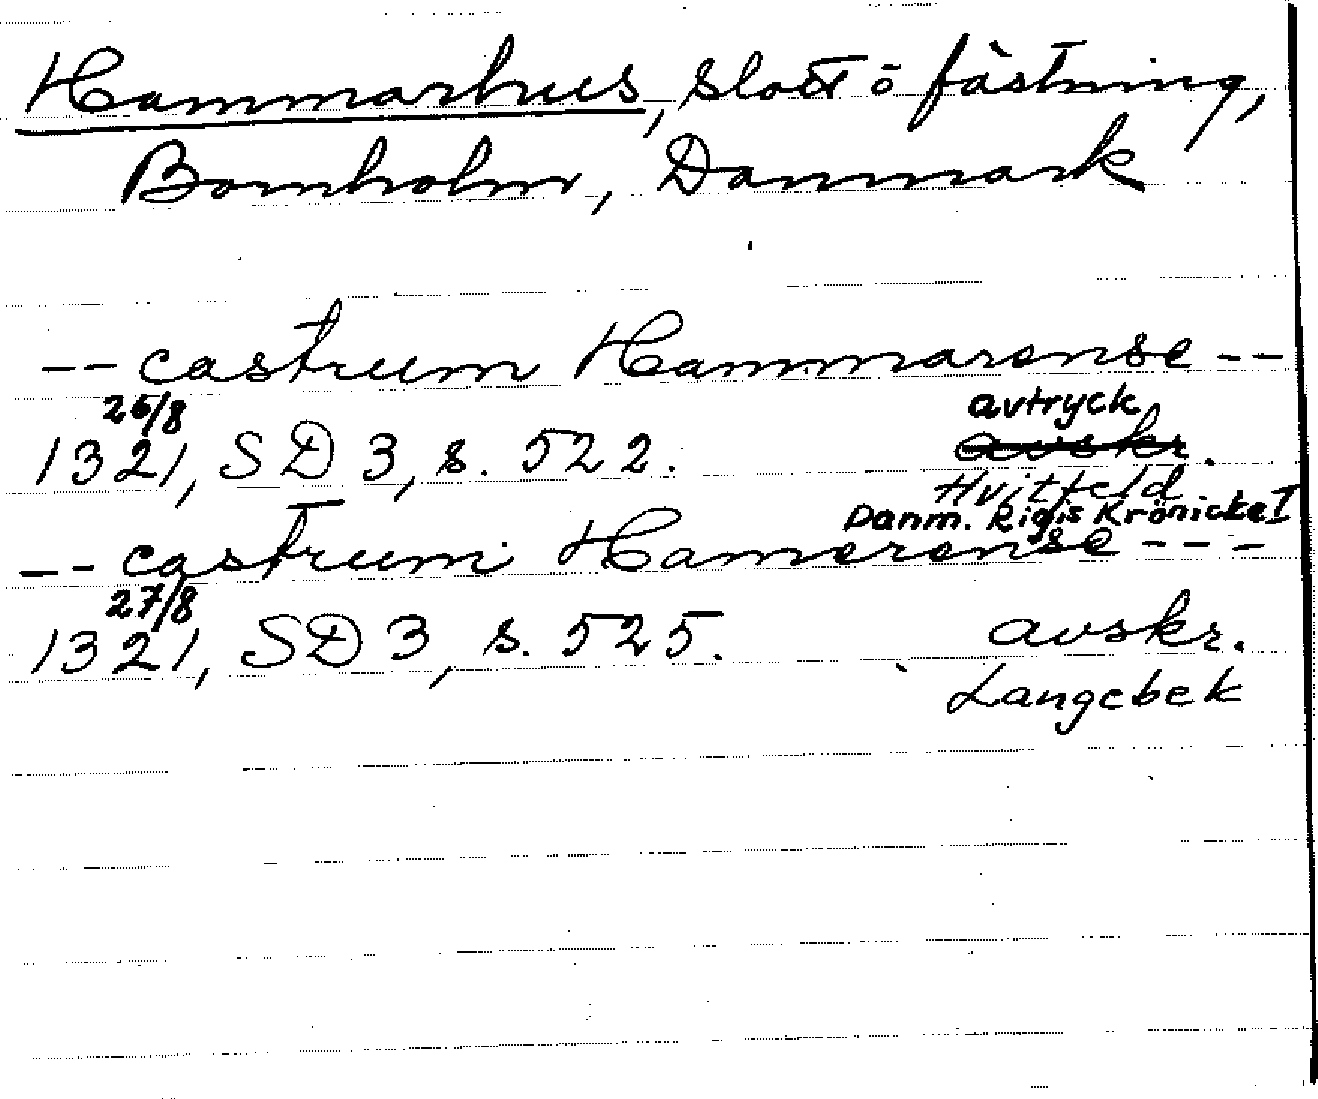 Hammarhus, slott o fästning,
Bornholm, Danmark
-- castrum Hammarense --
26/8 avtryck
1321, SD 3, s. 522. avskr.
Hvitfeld
Danm. Rigis Krönicke I
-- castrum Hamerense ---
27/8
1321, SD 3, s. 525. avskr.
Langebek